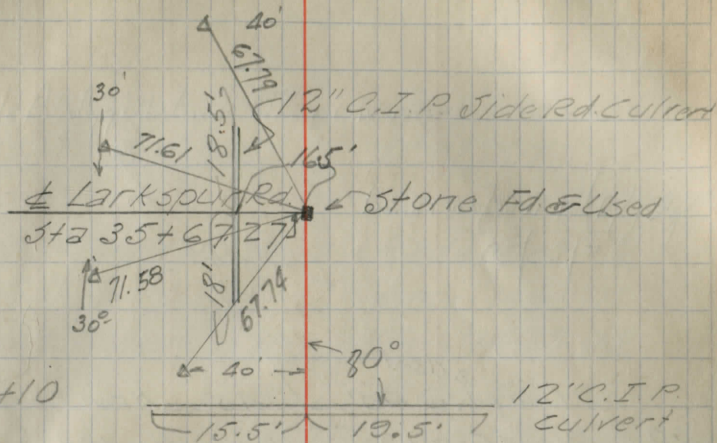 40'
67.79
30'
12" C.I.P. Side Rd. Culvert
18.5'
71.61
16.5'
℄ Larkspur Rd
Stone Fd. & Used
Sta 35+67.27
71.58
18'
67.74
30°
80°
40'
+10
12" C.I.P.
Culvert
15.5' 19.5'